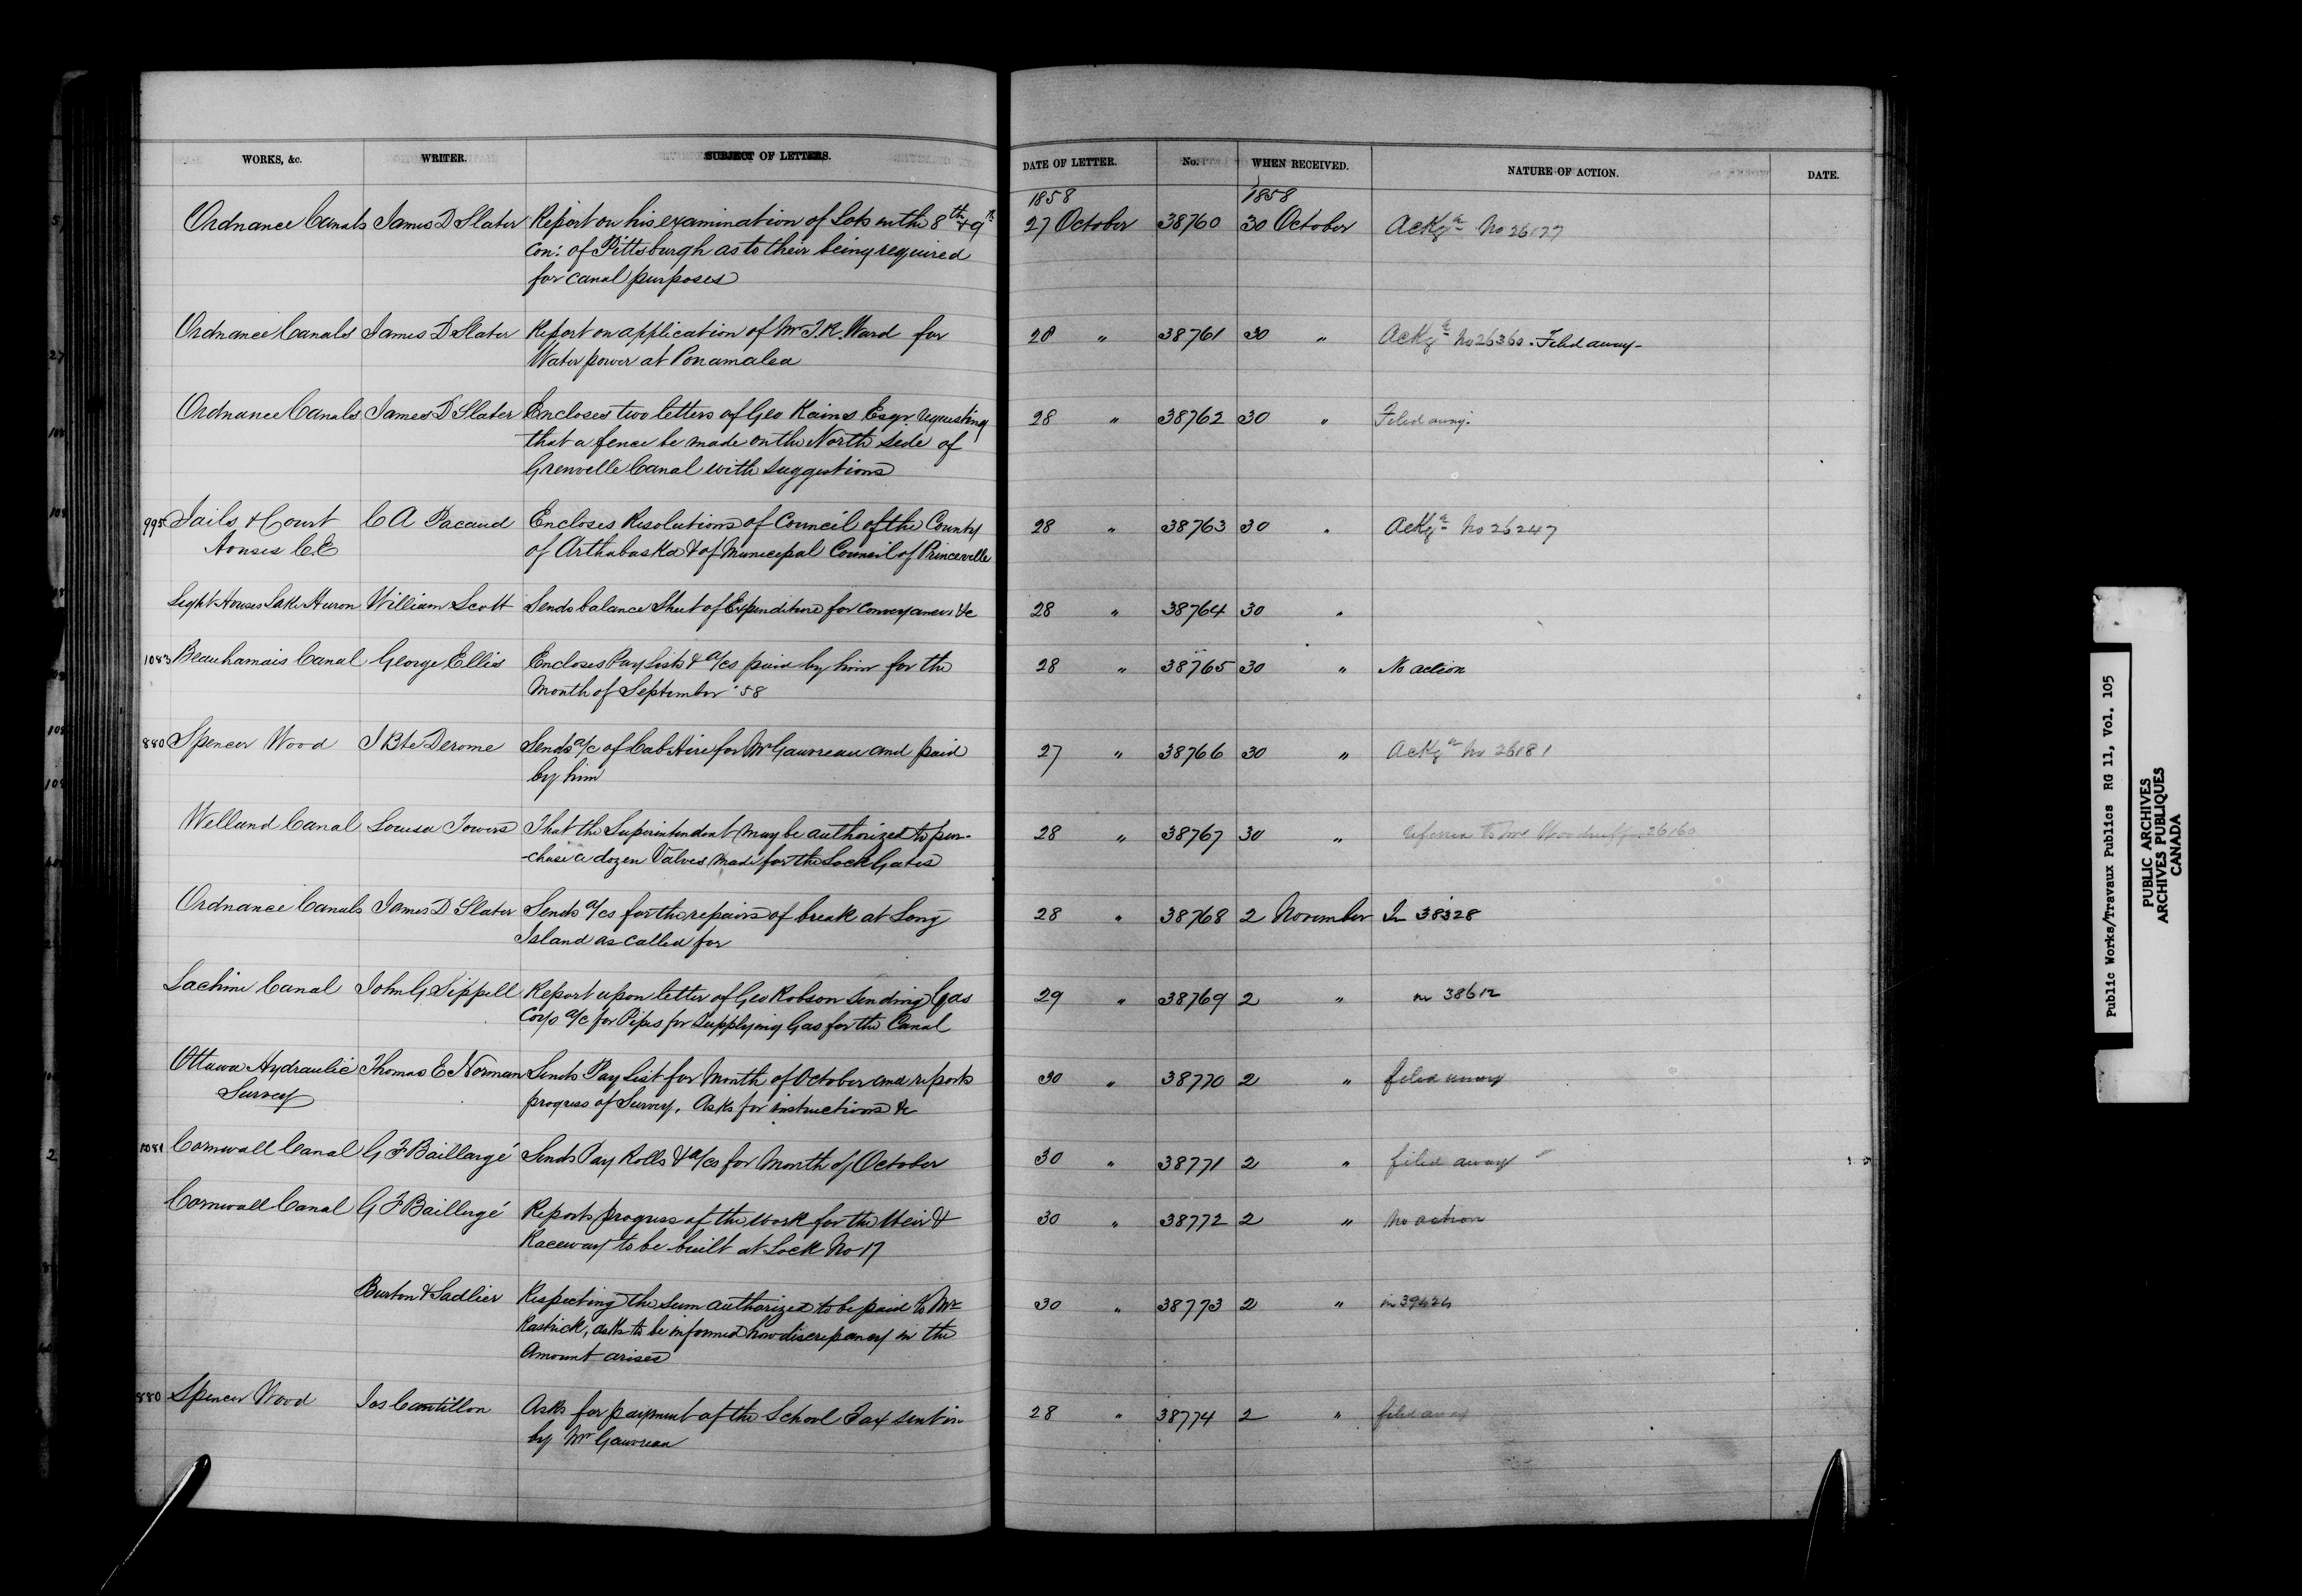 WORKS, &c. WRITER. SUBJECT OF LETTERS. DATE OF LETTER. No. WHEN RECEIVED. NATURE OF ACTION. DATE.
1858 1858
Ordnance Canals James D Slater Report on his examination of Lots in the 8th & 9th 27 October 38760 30 October Ackgd No 26177
Con: of Pittsburgh as to their being required
for canal purposes
Ordnance Canals James D Slater Report on application of Mr J. R. Ward for 28 " 38761 30 " Ackgd No 26360. Filed away-
Water power at Ponamalea
Ordnance Canals James D Slater Encloses two letters of Geo Kains Esqr. requesting 28 " 38762 30 " Filed away.
that a fence be made on the North side of
Grenville Canal with suggestions
995 Jails & Court C A Pacaud Encloses Resolutions of Council of the County 28 " 38763 30 " Ackgd No 26247
Houses C E of Arthabaska & of Municipal Council of Princeville
Light Houses Lake Huron William Scott Sends balance Sheet of Expenditure for conveyances &c 28 " 38764 30 "
1083 Beauharnois Canal George Ellis Encloses Pay Lists & a/cs paid by him for the 28 " 38765 30 " No action
Month of September '58
880 Spencer Wood J Bte Derome Sends a/c of Cab Hire for Mr Gauvreau and paid 27 " 38766 30 " Ackgd No 26181
by him
Welland Canal Louisa Towers That the Superintendent may be authorized to pur- 28 " 38767 30 " 26160
-chase a dozen Valves made for the Lock Gates
Ordnance Canals James D Slater Sends a/cs for the repairs of break at Long 28 " 38768 2 November In 38328
Island as called for
Lachine Canal John G Sippell Report upon letter of Geo Robson sending Gas 29 " 38769 2 " in 38612
Coys a/c for Pipes for supplying Gas for the Canal
Ottawa Hydraulic Thomas E Norman Sends Pay List for Month of October and reports 30 " 38770 2 " filed away
Survey progress of Survey. Asks for instructions &c
1081 Cornwall Canal G F Baillargé Sends Pay Rolls & a/cs for Month of October 30 " 38771 2 " filed away
Cornwall Canal G F Baillargé Reports progress of the work for the Weir & 30 " 38772 2 " No action
Raceway to be built at Lock No 17
Burton & Sadlier Respecting the sum authorized to be paid to Mr 30 " 38773 2 " in 39424
Rastrick, asks to be informed how discrepancy in the
Amount arises
880 Spencer Wood Jas Cantillon Asks for payment of the School Tax sent in 28 " 38774 2 " filed away
by Mr Gauvreau
Public Works/Travaux Publics RG 11, Vol. 105
PUBLIC ARCHIVES
ARCHIVES PUBLIQUES
CANADA